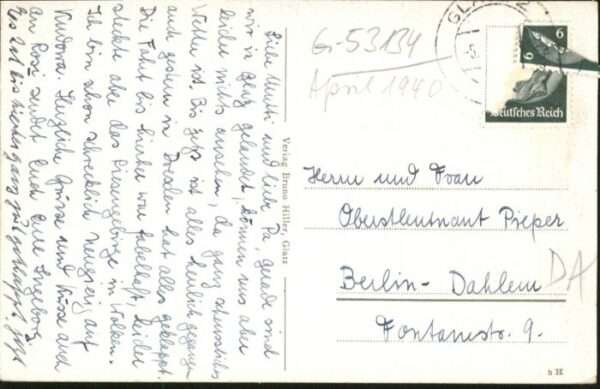 Liebe Mutti und lieber Pa, gerade sind
wir in Glaz gelandet, können uns aber
leider nichts ansehen, da ganz
Wetter ist. Bis jetzt ist alles herrlich gegangen
auch gestern in Dresden hat alles geklappt.
Die Fahrt bis hierher war fabelhaft, leider
steckte aber das Riesengebirge in Wolken.
Ich bin schon schrecklich neugierig auf
Kudowa. Herzliche Grüsse und Küsse auch
an Rosi sendet Euch Eure Ingeborg.
Es ist bis hierher ganz gut geklappt.
Verlag Bruno Hiller, Glatz
G-53134
April 1940
GLA
6
6
Deutsches Reich
Herrn und Frau
Oberstleutnant Pieper
Berlin-Dahlem
DA
Fontanestr. 9.